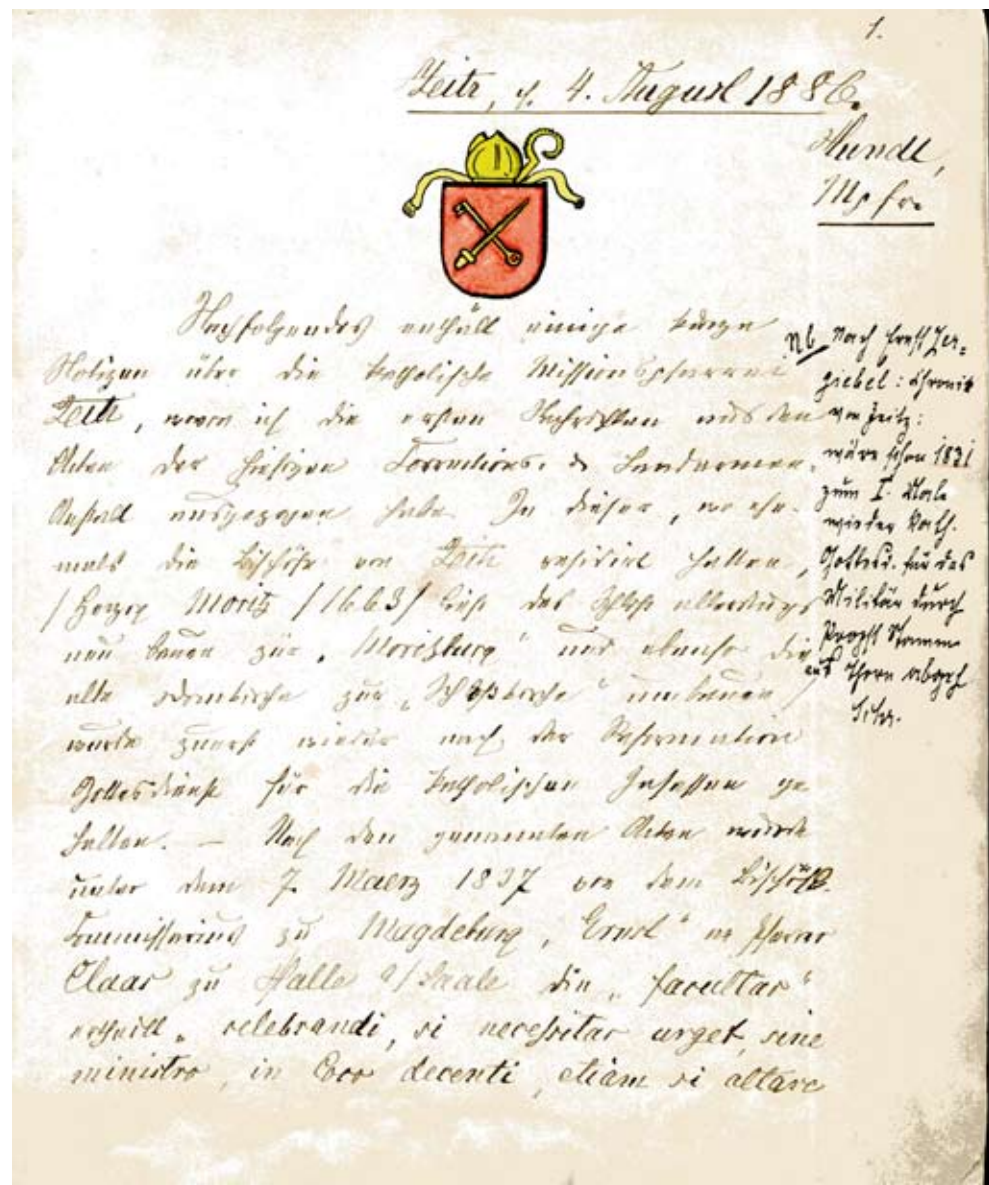 1.
Zeitz, d. 4. August 1886.
Hundt,
Mspfr.
Nachfolgendes enthält einige kurze
Notizen über die katholische Missionspfarrei
Zeitz, wovon ich die ersten Nachrichten aus den
Akten der hiesigen Corrections- & Landarmen-
Anstalt ausgezogen habe. In dieser, wo ehe-
mals die Bischöfe von Zeitz residirt hatten,
/Herzog Moritz /1663/ ließ das Schloß allerdings
neu bauen zur „Moritzburg" und ebenso die
alte Domkirche zur „Schloßkirche" umbauen/
wurde zuerst wieder nach der Reformation
Gottesdienst für die katholischen Insassen ge-
halten. — Nach den genannten Akten wurde
unter dem 7. Maerz 1837 von dem Bischöfl.
Commissarius zu Magdeburg, „Ernst" Pfarrer
Claas zu Halle a/Saale die „facultas"
ertheilt „celebrandi, si necessitas urget, sine
ministro, in loco decenti, etiam si altare
Nb. Nach Ernst Zer-
giebel: Chronik
von Zeitz:
wäre schon 1831
zum I. Male
wieder kath.
Gottesd. für das
Militär durch
Propst
aus Thorn abgeh